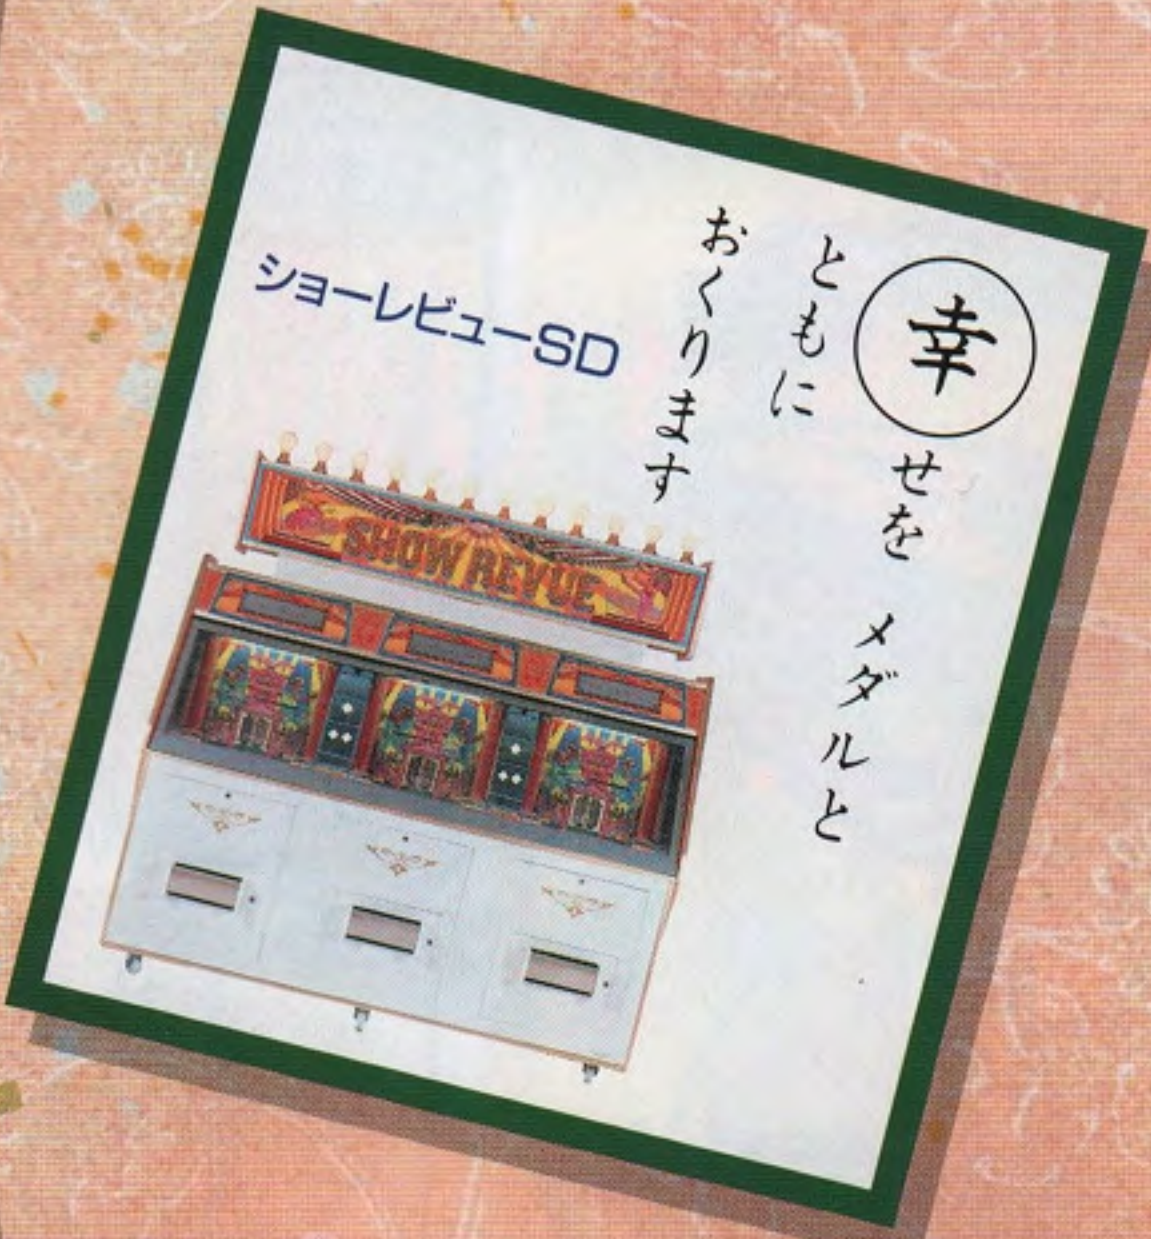 幸せを メダルと
ともに
おくります
ショーレビューSD
SHOW REVUE